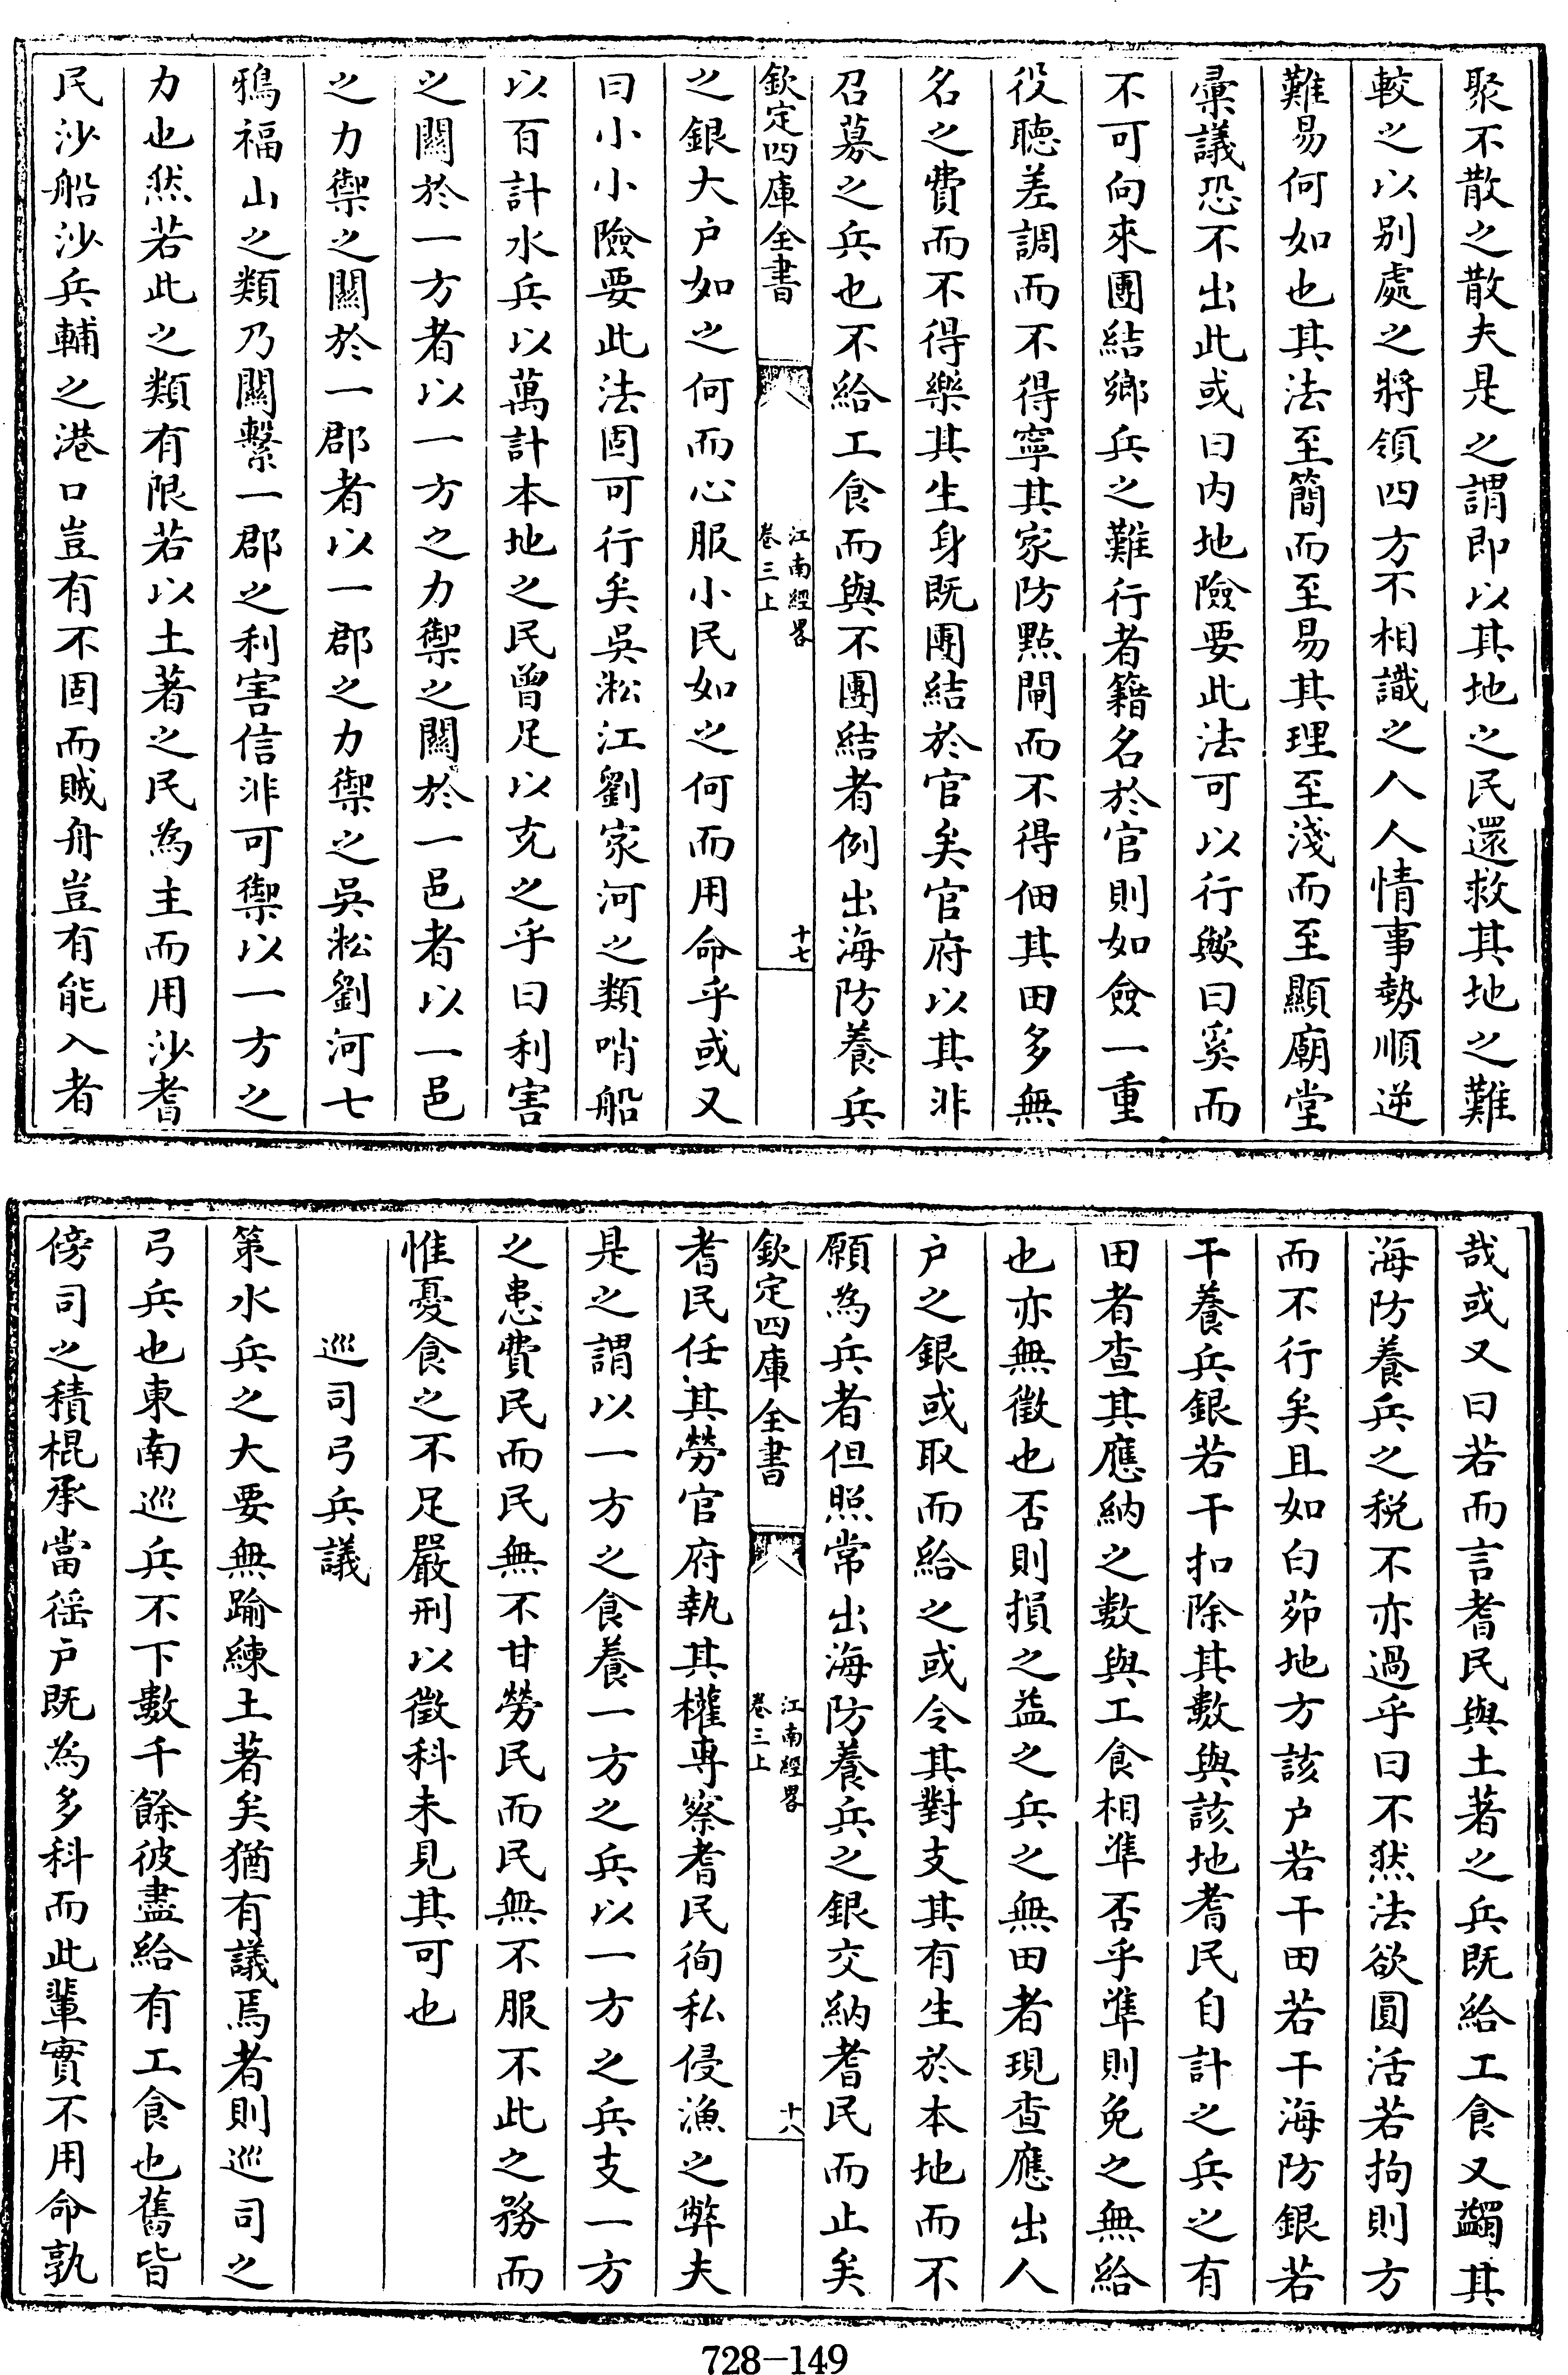 聚不散之散夫是之謂即以其地之民還救其地之難
較之以别處之將領四方不相識之人人情事勢順逆
難易何如也其法至簡而至易其理至淺而至顯廟堂
彙議恐不出此或曰内地險要此法可以行歟曰奚而
不可向來團結鄉兵之難行者籍名於官則如僉一重
役聽差調而不得寧其家防點閘而不得佃其田多無
名之費而不得樂其生身既團結於官矣官府以其非
召募之兵也不給工食而與不團結者例出海防養兵
欽定四庫全書
江南經畧
卷三上
十七
之銀大户如之何而心服小民如之何而用命乎或又
曰小小險要此法固可行矣吳淞江劉家河之類哨船
以百計水兵以萬計本地之民曾足以充之乎曰利害
之關於一方者以一方之力禦之關於一邑者以一邑
之力禦之關於一郡者以一郡之力禦之吳淞劉河七
鴉福山之類乃關繫一郡之利害信非可禦以一方之
力也然若此之類有限若以土著之民為主而用沙耆
民沙船沙兵輔之港口豈有不固而賊舟豈有能入者
哉或又曰若而言耆民與土著之兵既給工食又蠲其
海防養兵之税不亦過乎曰不然法欲圓活若拘則方
而不行矣且如白茆地方該户若干田若干海防銀若
干養兵銀若干扣除其數與該地耆民自計之兵之有
田者查其應納之數與工食相準否乎準則免之無給
也亦無徵也否則損之益之兵之無田者現查應出人
户之銀或取而給之或令其對支其有生於本地而不
願為兵者但照常出海防養兵之銀交納耆民而止矣
欽定四庫全書
江南經畧
卷三上
十八
耆民任其勞官府執其權專察耆民徇私侵漁之弊夫
是之謂以一方之食養一方之兵以一方之兵支一方
之患費民而民無不甘勞民而民無不服不此之務而
惟憂食之不足嚴刑以徵科未見其可也
巡司弓兵議
策水兵之大要無踰練土著矣猶有議焉者則巡司之
弓兵也東南巡兵不下數千餘彼盡給有工食也舊皆
傍司之積棍承當徭户既為多科而此輩實不用命孰
728—149